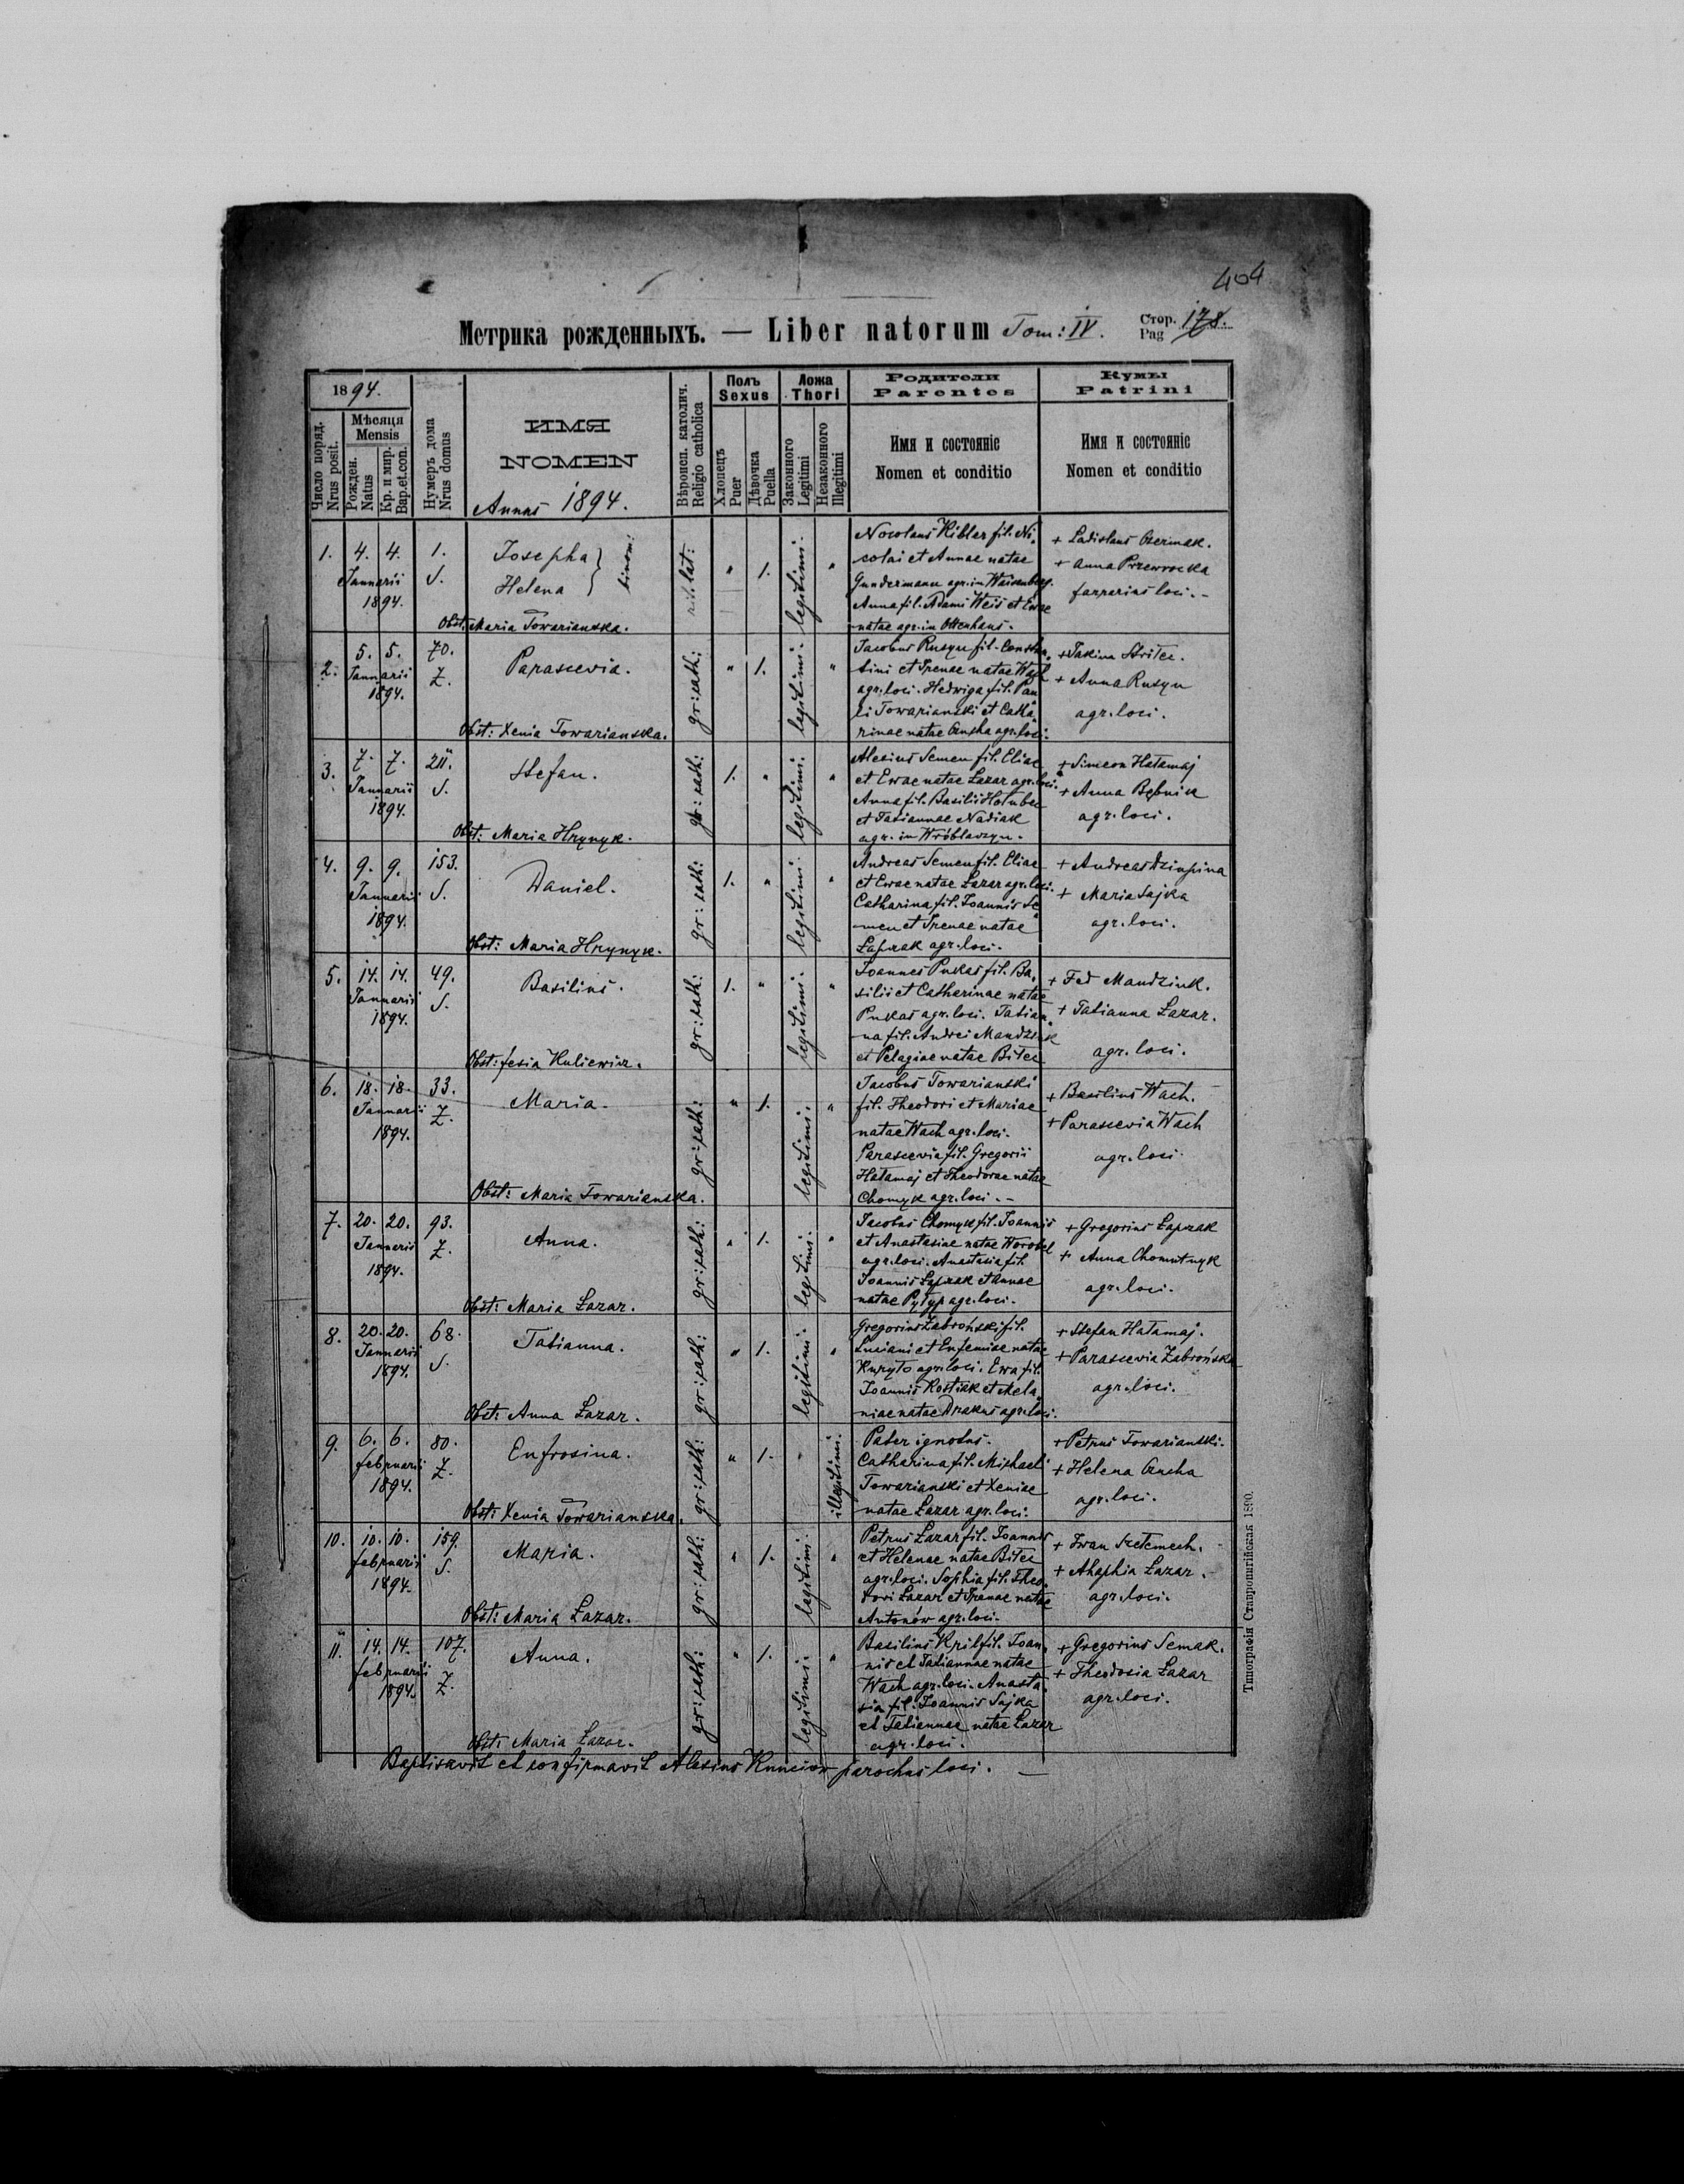 404
Метрика рожденныхъ. — Liber natorum Tom: IV.
Стор. 178.
Pag
1894.
Число поряд.
Nrus posit.
Мѣсяця
Mensis
Рожден.
Natus
Кр. и мир.
Bap.et.con.
Нумеръ дома
Nrus domus
ИМЯ
NOMEN
Annus 1894.
Вѣроисп. католич.
Religio catholica
Полъ
Sexus
Хлопецъ
Puer
Дѣвочка
Puella
Ложа
Thori
Законного
Legitimi
Незаконного
Illegitimi
Родители
Parentes
Имя и состоянiе
Nomen et conditio
Кумы
Patrini
Имя и состоянiе
Nomen et conditio
1. 4. 4. 1.
Januarii S.
1894.
Josepha }
Helena } binom:
Obst: Maria Towarianska.
rit. lat: " 1. legitimi. "
Nocolaus Kibler fil. Ni
colai et Annae natae
Gundermann agr. in Waisenberg.
Anna fil. Adami Weis et Ewae
natae agr. in Ottenhaus.
+ Ladislaus Czermak.
+ Anna Przewrocka
loci.-
2. 5. 5. 70.
Januarii Z.
1894.
Parascevia.
Obst: Xenia Towarianska.
gr: cath: " 1. legitimi. "
Jacobus Rusyn fil. Constan
tini et Irenae natae
agr. loci. Hedwiga fil. Pau
li Towarianski et Catha
rinae natae agr. loci.
+ Anna Rusyn
agr. loci.
3. 7. 7. 211.
Januarii S.
1894.
Stefan.
Obst: Maria Hrynyk.
gr: cath: 1. " legitimi. "
Alexius Semen fil. Eliae
et Ewae natae Lazar agr. loci.
Anna fil. Basilii Holubec
et Tatiannae Nadiak
agr. in Wróblaczyn.
+ Simeon Hatamaj
+ Anna Bębnik
agr. loci.
4. 9. 9. 153.
Januarii S.
1894.
Daniel.
Obst: Maria Hrynyk.
gr: cath: 1. " legitimi. "
Andreas Semen fil. Eliae
et Ewae natae Lazar agr. loci.
Catharina fil. Joannis Se
men et Irenae natae
Łaprak agr. loci.
+ Andreas Dziupina
+ Maria Sajka
agr. loci.
5. 14. 14. 49.
Januarii S.
1894.
Basilius.
Obst: Kuliewicz.
gr: cath: 1. " legitimi. "
Joannes Pukas fil. Ba
silii et Catharinae natae
Pukas agr. loci. Tatian
na fil. Andrei Mandziuk
et Pelagiae natae Bitec
+ Fed Mandziuk.
+ Tatianna Łazar.
agr. loci.
6. 18. 18. 33.
Januarii Z.
1894.
Maria.
Obst: Maria Towarianska.
gr: cath: " 1. legitimi. "
Jacobus Towarianski
fil. Theodori et Mariae
natae Wach agr. loci.
Parascevia fil. Gregorii
Hatamaj et Theodorae natae
Chomyk agr. loci.-
+ Basilius Wach.
+ Parascevia Wach
agr. loci
7. 20. 20. 93.
Januarii Z.
1894.
Anna.
Obst: Maria Łazar.
gr: cath: " 1. legitimi. "
Jacobus Chomyk fil. Joannis
et Anastasiae natae Worobel
agr. loci. Anastasia fil.
Joannis Łaprak et Annae
natae Pytyp agr. loci.
+ Gregorius Łaprak
+ Anna Chomutnyk
agr. loci.
8. 20. 20. 68.
Januarii S.
1894.
Tatianna.
Obst: Anna Łazar.
gr: cath: " 1. legitimi. "
Gregorius Zabroński fil.
Luciani et Eufemiae natae
Kuryło agr. loci. Ewa fil.
Joannis Kostiak et Mela
niae natae Drakus agr. loci.
+ Stefan Hatamaj.
+ Parascevia Zabrońska
agr. loci.
9. 6. 6. 80.
februarii Z.
1894.
Eufrosina.
Obst: Xenia Towarianska.
gr: cath: " 1. " illegitimi.
Pater ignotus.
Catharina fil. Michaeli
Towarianski et Xeniae
natae Łazar agr. loci.
+ Petrus Towarianski.
+ Helena
agr. loci.
10. 10. 10. 159.
februarii S.
1894.
Maria.
Obst: Maria Łazar.
gr: cath: " 1. legitimi. "
Petrus Łazar fil. Joannis
et Helenae natae Bitec
agr. loci. Sophia fil. Theo
dori Łazar et Irenae natae
Antonów agr. loci.
+ Iwan Szetemech.
+ Ahaphia Łazar.
agr. loci.
11. 14. 14. 107.
februarii Z.
1894.
Anna.
Obst: Maria Łazar.
gr: cath: " 1. legitimi. "
Basilius Kril fil. Joan
nis et Tatiannae natae
Wach agr. loci. Anasta
sia fil. Joannis Sajka
et Tatiannae natae Łazar
agr. loci.
+ Gregorius Semak.
+ Theodosia Łazar
agr. loci.
Baptisavit et confirmavit Alexius parochus loci. —
Типографiя Ставропигiйская 1890.